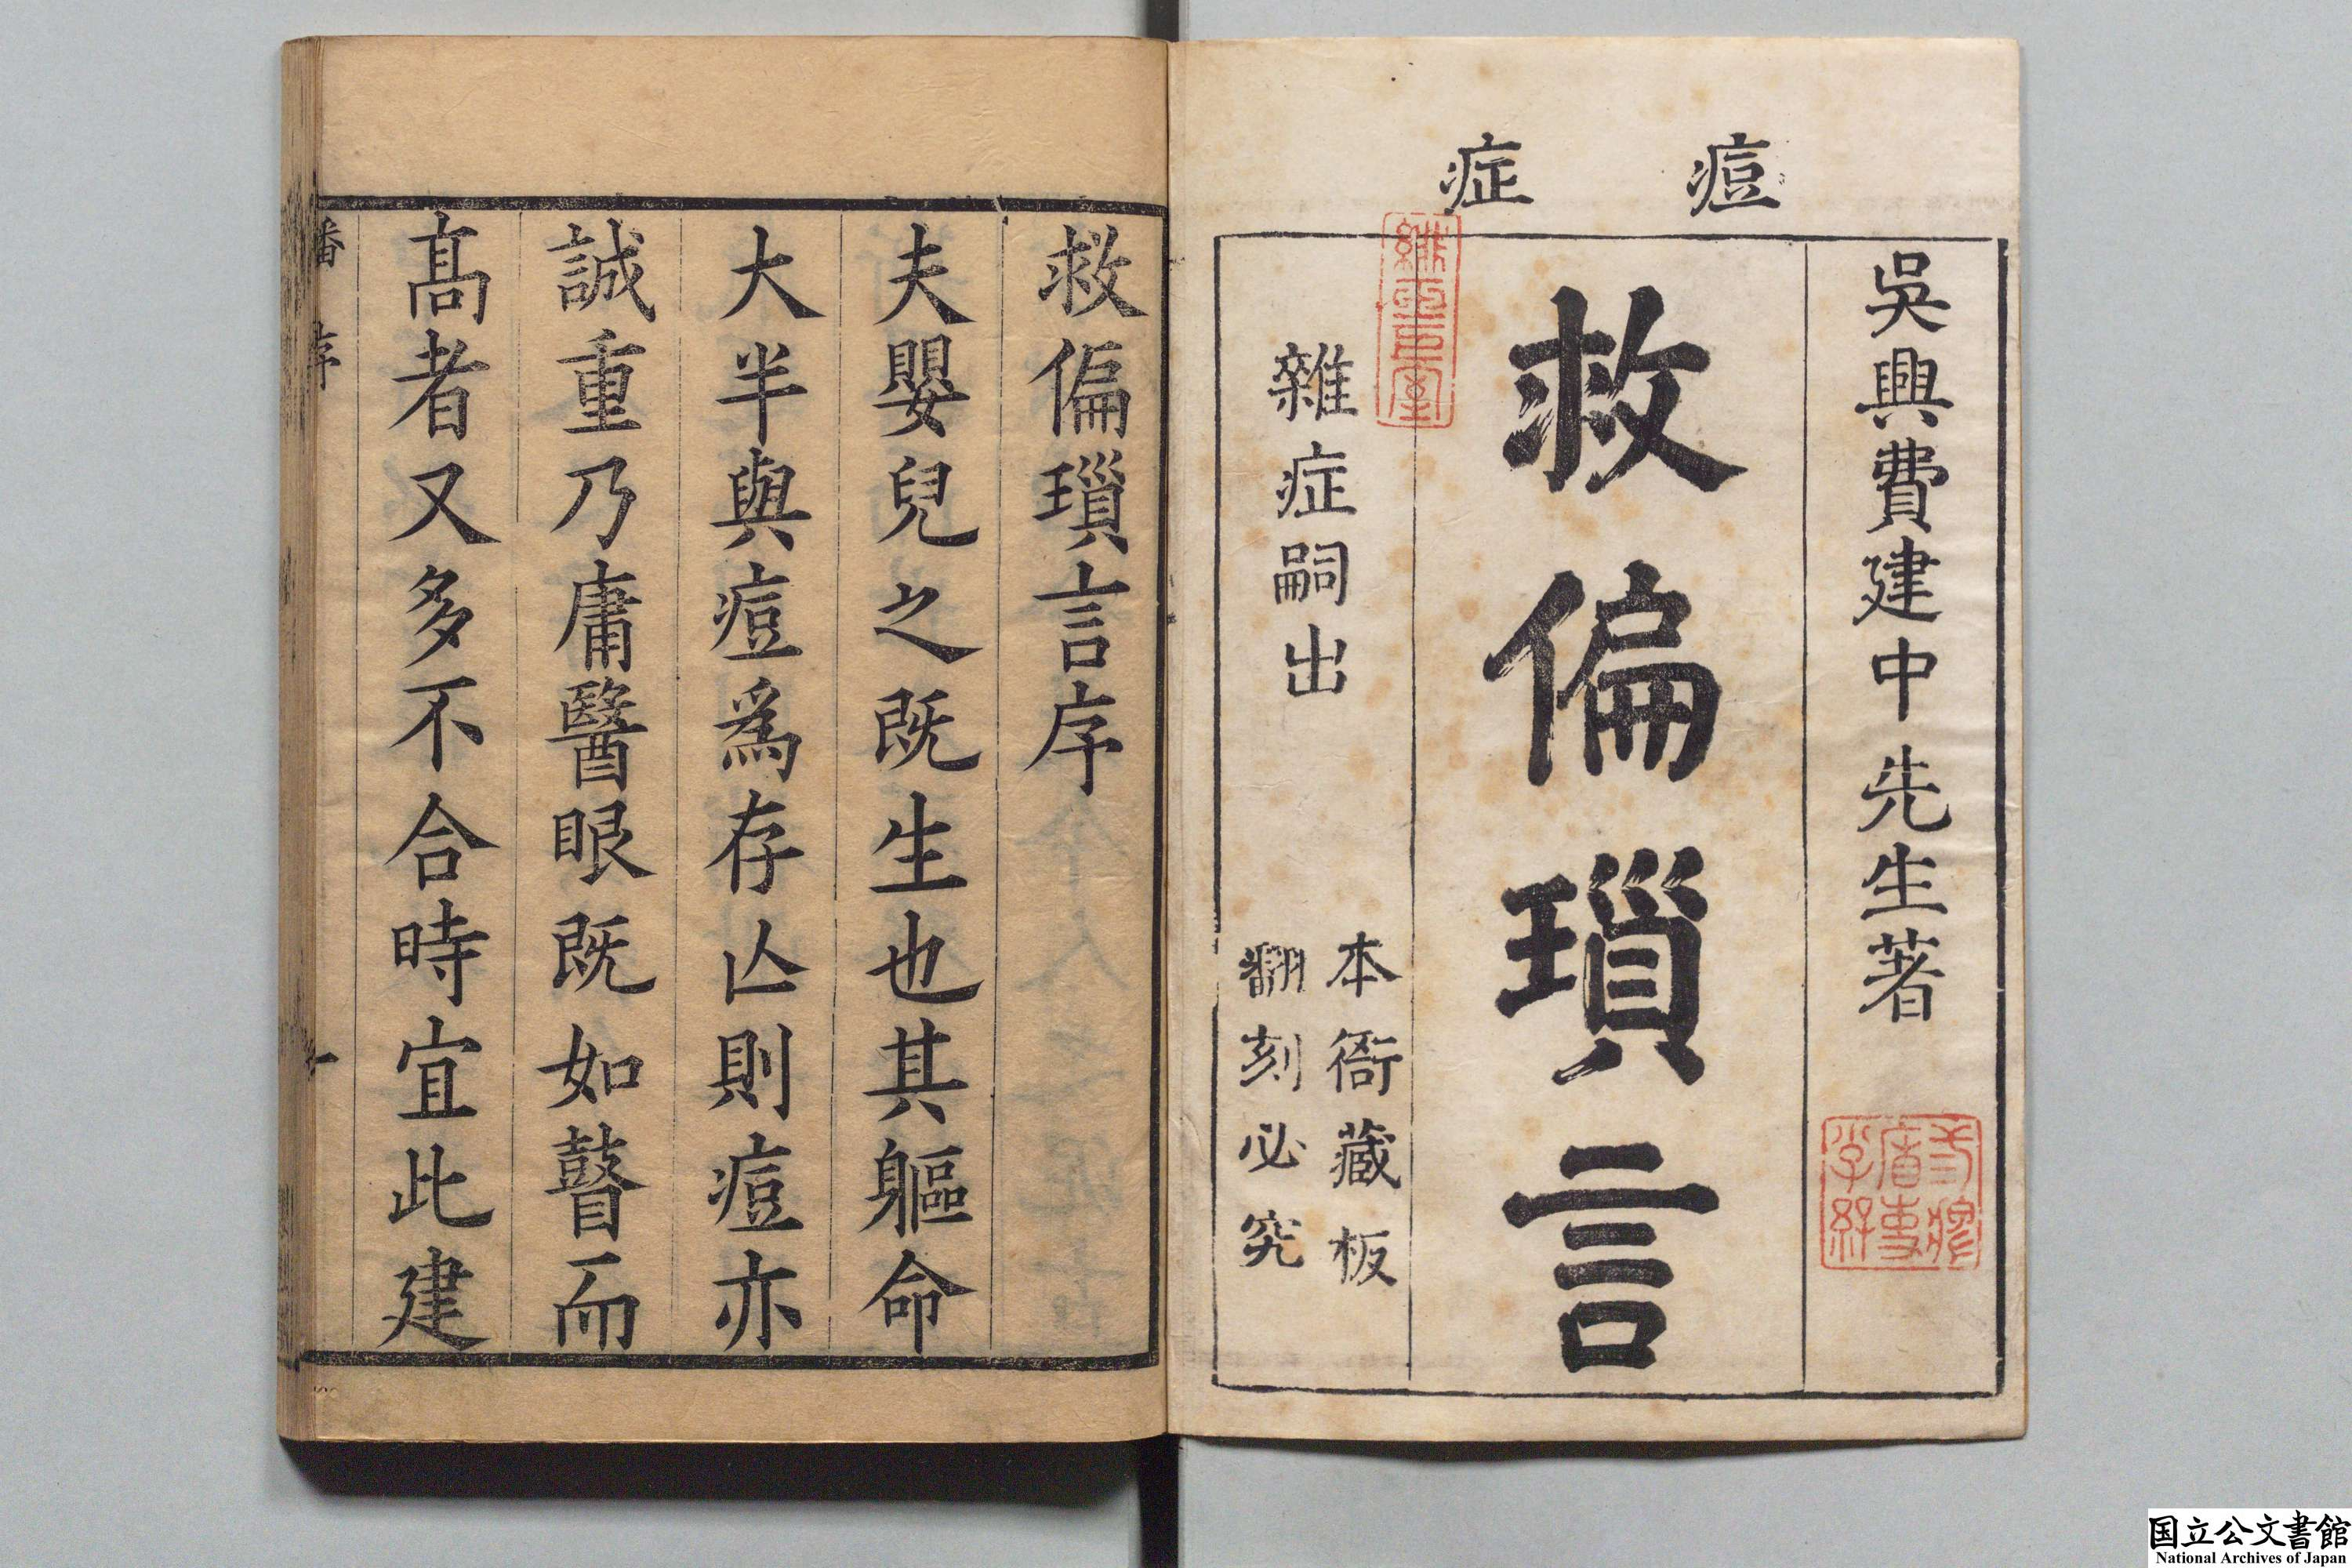 痘症
吳興費建中先生著
救偏瑣言
雜症嗣出
本衙藏板
翻刻必究
救偏瑣言序
夫嬰兒之既生也其軀命
大半與痘爲存亾則痘亦
誠重乃庸醫眼既如瞽而
高者又多不合時宜此建
潘序
一
国立公文書館
National Archives of Japan